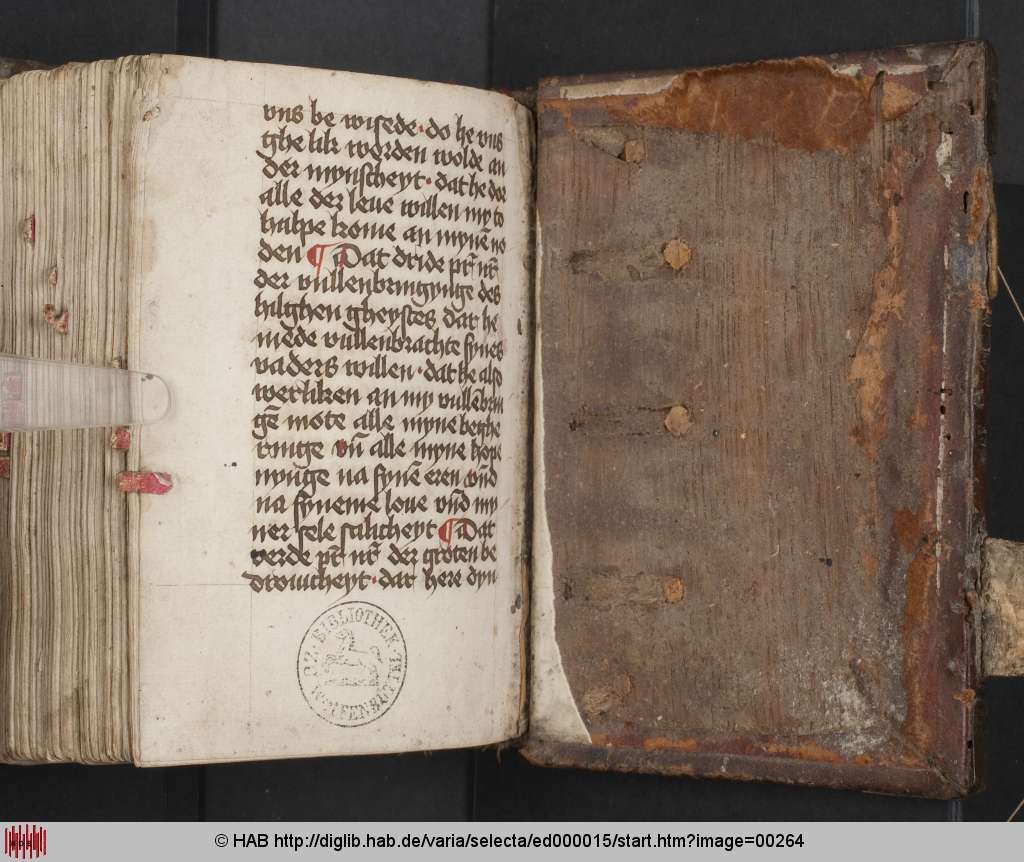 vns be wisede· do he vns
ghe lik worden wolde an
der mynscheyt· dat he dor
alle der leue willen my to
halpe kome an mynē no
den ¶ Dat dridde pr̄ nr̄
der vullenbringynge des
hilghen gheystes dat he
mede vullenbrachte synes
vaders willen· dat he also
werliken an my vullēbrin
gē mote alle myne beghe
ringe vn̄ alle myne hope
nynge na synē eren vn̄d
na syneme loue vn̄d my
ner sele salicheyt ¶ Dat
verde pr̄ nr̄ der groten be
drouicheyt· dat here dyn
BIBLIOTHEK
WOLFENBÜTTEL
© HAB http://diglib.hab.de/varia/selecta/ed000015/start.htm?image=00264